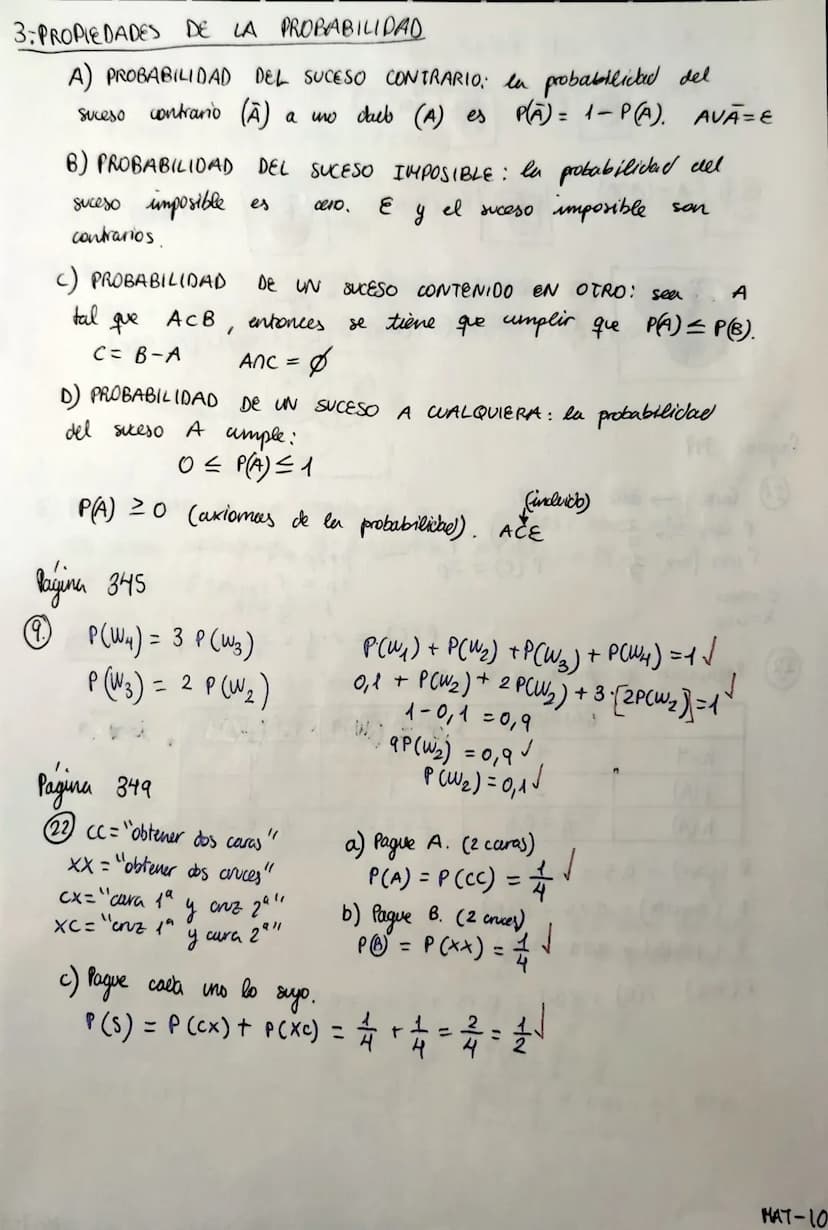 3: PROPIEDADES DE LA PROBABILIDAD
A) PROBABILIDAD DEL SUCESO CONTRARIO: la probabilidad del
suceso contrario (Ā) a uno dado (A) es P(Ā) = 1 - P(A). A∪Ā = E
B) PROBABILIDAD DEL SUCESO IMPOSIBLE: la probabilidad del
suceso imposible es cero. E y el suceso imposible son
contrarios.
C) PROBABILIDAD DE UN SUCESO CONTENIDO EN OTRO: sea A
tal que A⊂B, entonces se tiene que cumplir que P(A) ≤ P(B).
C = B - A A∩C = ∅
D) PROBABILIDAD DE UN SUCESO A CUALQUIERA: la probabilidad
del suceso A cumple:
0 ≤ P(A) ≤ 1
(incluido)
P(A) ≥ 0 (axiomas de la probabilidad). A⊂E
Página 345
9. P(W4) = 3 P(W3)
P(W3) = 2 P(W2)
P(W1) + P(W2) + P(W3) + P(W4) = 1 ✓
0,1 + P(W2) + 2P(W2) + 3·[2P(W2)] = 1 ✓
1 - 0,1 = 0,9
9P(W2) = 0,9 ✓
P(W2) = 0,1 ✓
Página 349
22 CC = "obtener dos caras"
XX = "obtener dos cruces"
CX = "cara 1ª y cruz 2ª"
XC = "cruz 1ª y cara 2ª"
a) Pague A. (2 caras)
P(A) = P(CC) = 1/4 ✓
b) Pague B. (2 cruces)
P(B) = P(XX) = 1/4 ✓
c) Pague cada uno lo suyo.
P(S) = P(CX) + P(XC) = 1/4 + 1/4 = 2/4 = 1/2 ✓
MAT-10